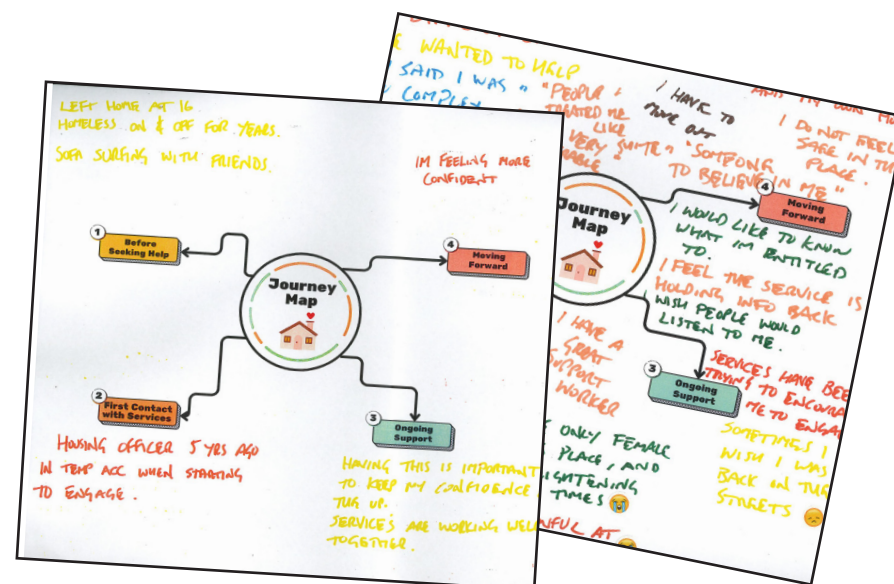 LEFT HOME AT 16
HOMELESS ON & OFF FOR YEARS.
SOFA SURFING WITH FRIENDS.
IM FEELING MORE
CONFIDENT
1
Before
Seeking Help
4
Moving
Forward
Journey
Map
2
First Contact
with Services
3
Ongoing
Support
HOUSING OFFICER 5 YRS AGO
IN TEMP ACC WHEN STARTING
TO ENGAGE.
HAVING THIS IS IMPORTANT
TO KEEP MY CONFIDENCE
UP.
SERVICES ARE WORKING WEL
TOGETHER.
WANTED TO HELP
SAID I WAS "
COMPLEX
"PEOPLE
TREATED ME
LIKE
VERY
I HAVE TO
MOVE OUT
"SOMEONE
TO BELIEVE IN ME"
I DO NOT FEEL
SAFE IN TH
PLACE.
4
Moving
Forward
Journey
Map
I WOULD LIKE TO KNOW
WHAT IM ENTITLED
TO.
I FEEL THE SERVICE IS
HOLDING INFO BACK
WISH PEOPLE WOULD
LISTEN TO ME.
I HAVE A
GREAT
SUPPORT
WORKER
3
Ongoing
Support
SERVICES HAVE BEE
TRYING TO ENCOURA
ME TO ENGA
ONLY FEMALE
PLACE, AND
IGHTENING
TIMES 😭
SOMETIMES I
WISH I WAS
BACK IN THE
STREETS 😞
NFUL AT